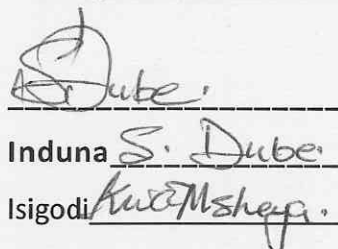 S. Dube.
Induna S. Dube.
Isigodi KwaMshaya.